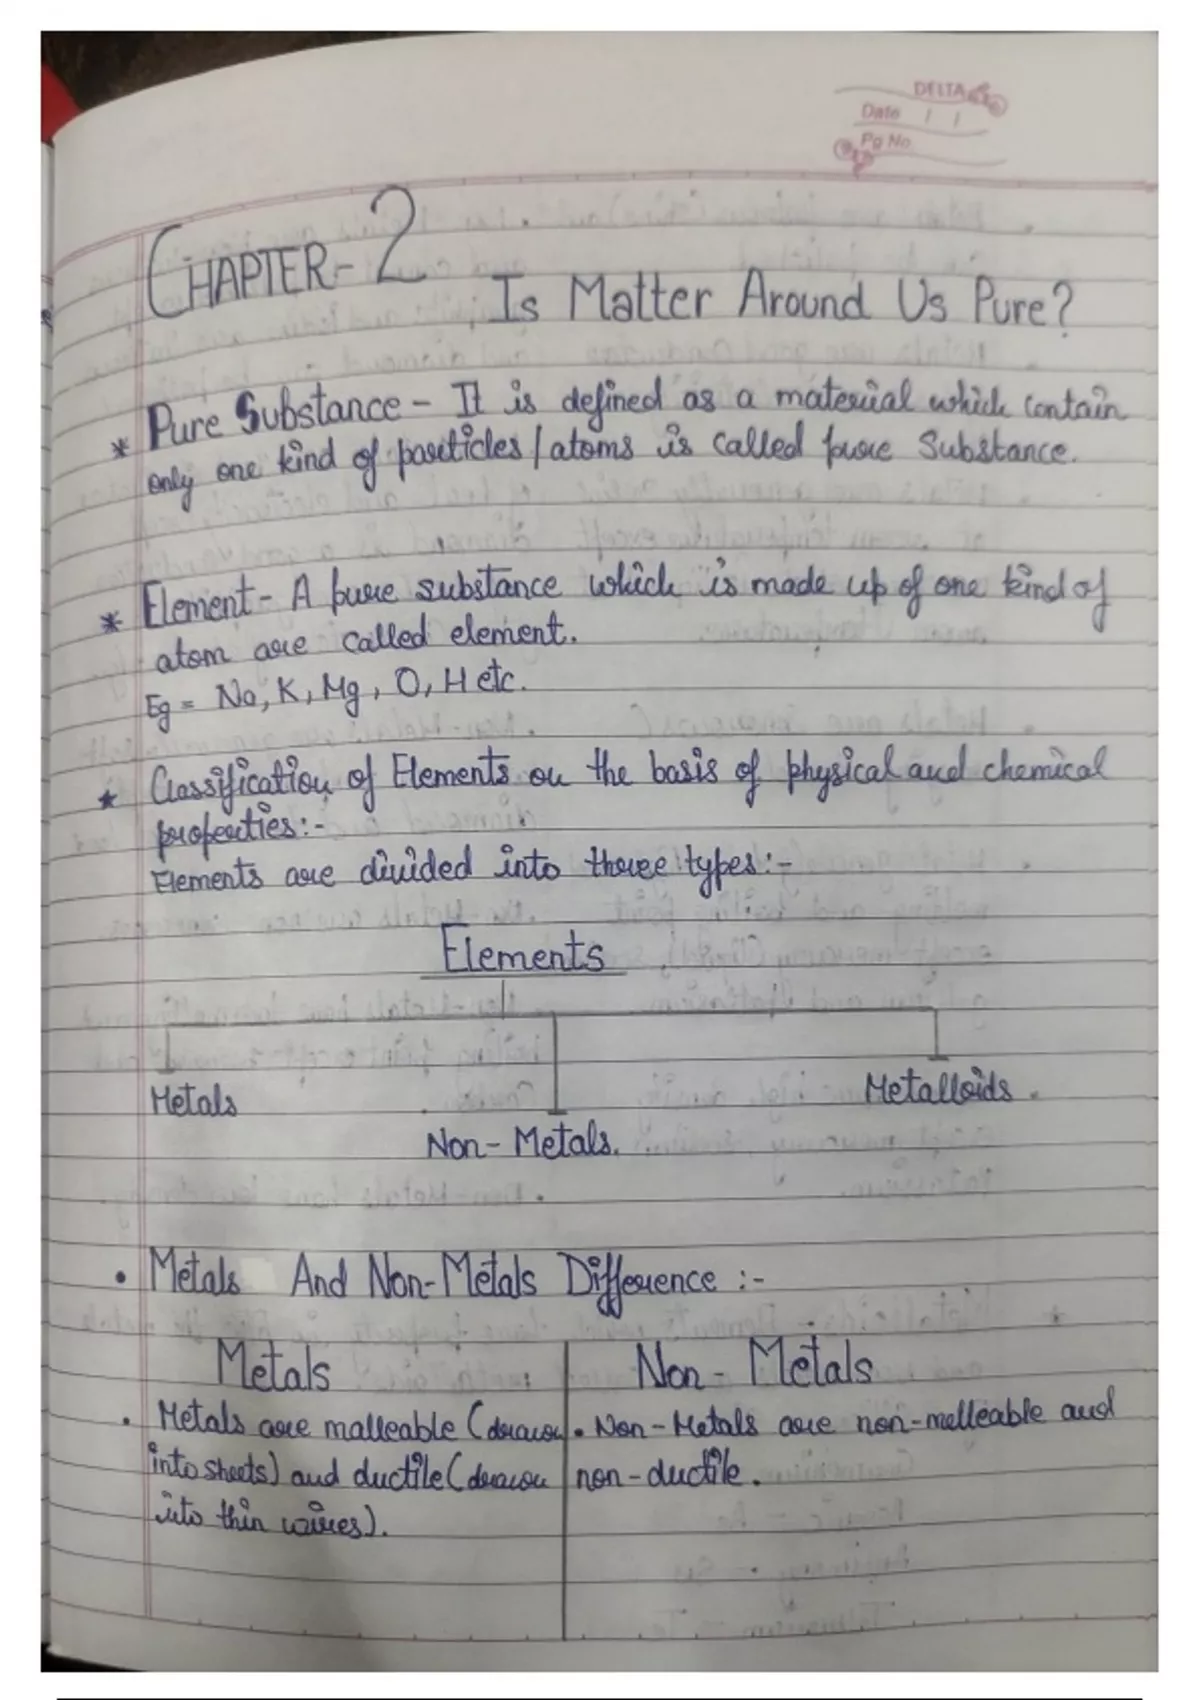 DELTA
Date / /
Pg No
CHAPTER-2
Is Matter Around Us Pure?
* Pure Substance - It is defined as a material which contain
only one kind of particles/atoms is called pure Substance.
* Element - A pure substance which is made up of one kind of
atom are called element.
Eg = Na, K, Mg, O, H etc.
* Classification of Elements on the basis of physical and chemical
properties:-
Elements are divided into three types:-
Elements
Metals
Metalloids.
Non-Metals.
• Metals And Non-Metals Difference :-
Metals Non-Metals
• Metals are malleable (drawn • Non-Metals are non-melleable and
into sheets) and ductile (drawn non-ductile.
into thin wires).